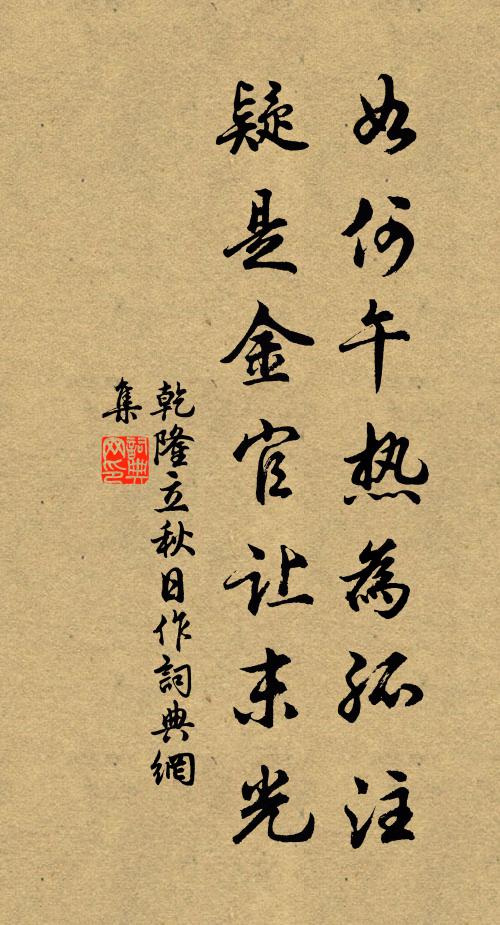 如何午热為孤注
疑是金官让末光
乾隆立秋日作詞典網
集
詞典
网印